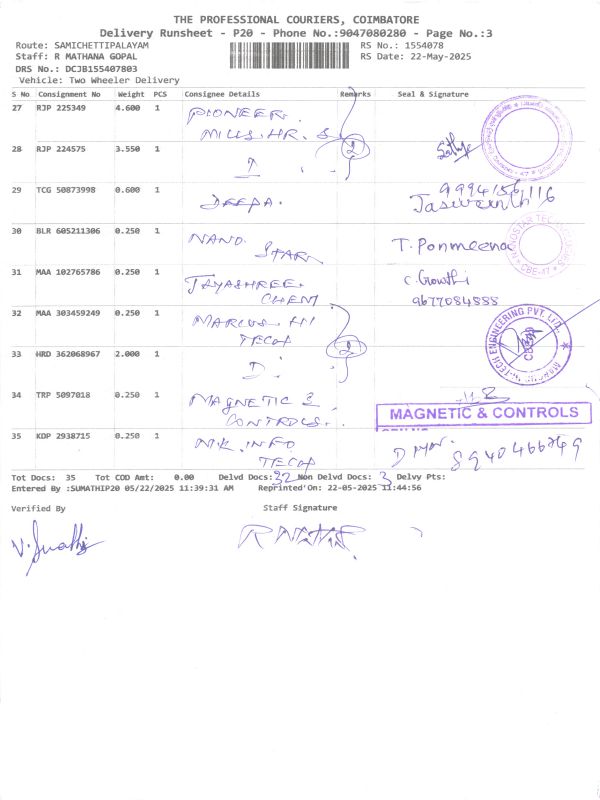 THE PROFESSIONAL COURIERS, COIMBATORE
Delivery Runsheet - P20 - Phone No.:9047080280 - Page No.:3
Route: SAMICHETTIPALAYAM RS No.: 1554078
Staff: R MATHANA GOPAL RS Date: 22-May-2025
DRS No.: DCJB155407803
Vehicle: Two Wheeler Delivery
S No Consignment No Weight PCS Consignee Details Remarks Seal & Signature
27 RJP 225349 4.600 1 PIONEER
MILLS. HR. S
28 RJP 224575 3.550 1 2
29 TCG 50873998 0.600 1 DEEPA. 9994156116
30 BLR 605211306 0.250 1 NANO STAR T. Ponmeena
NANOSTAR TECHNOLOGIES
CBE-47
31 MAA 102765786 0.250 1 JAYASHREE CHEM C. Gowthi
9677084888
32 MAA 303459249 0.250 1 MARCUS HI TECH
33 HRD 362068967 2.000 1 D. 2
34 TRP 5097018 0.250 1 MAGNETIC & CONTROLS.
MAGNETIC & CONTROLS
35 KDP 2938715 0.250 1 INFO TECH 8940466849
Tot Docs: 35 Tot COD Amt: 0.00 Delvd Docs: 32 Non Delvd Docs: 3 Delvy Pts:
Entered By :SUMATHIP20 05/22/2025 11:39:31 AM Reprinted On: 22-05-2025 11:44:56
Verified By Staff Signature